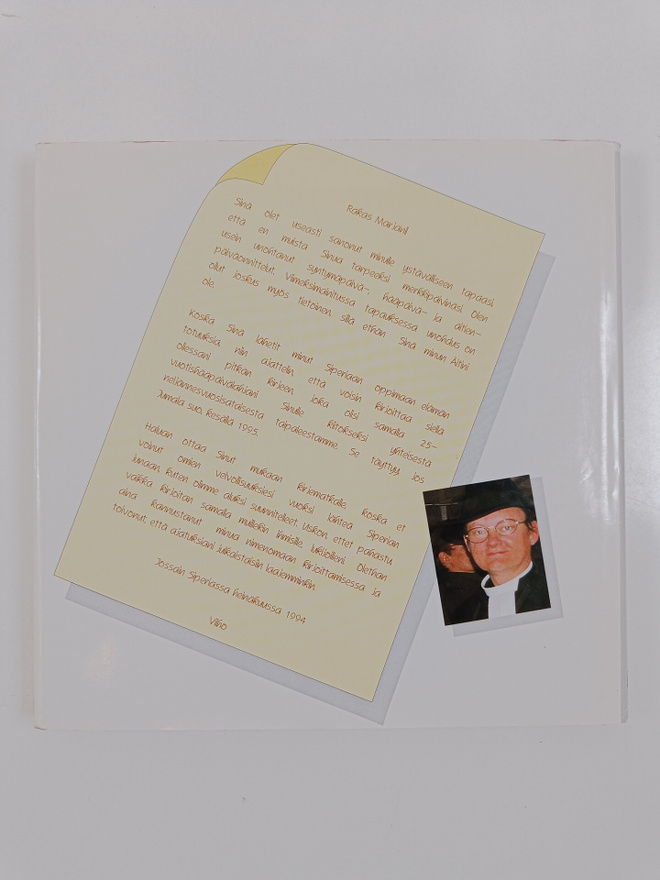 Rakas Marjani!
Sinä olet useasti sanonut minulle ystävälliseen tapaasi,
että en muista Sinua tarpeeksi merkkipäivinäsi. Olen
usein unohtanut syntymäpäivä-, hääpäivä- ja äitien-
päiväonnittelut. Viimeksimainitussa tapauksessa unohdus on
ollut joskus myös tietoinen, sillä ethän Sinä minun Äitini
ole.
Koska Sinä lähetit minut Siperiaan oppimaan elämän
totuuksia, niin ajattelin, että voisin kirjoittaa siellä
ollessani pitkän kirjeen, joka olisi samalla 25-
vuotishääpäivälahjani Sinulle kiitokseksi yhteisestä
neljännesvuosisataisesta taipaleestamme. Se täyttyy, jos
Jumala suo, kesällä 1995.
Haluan ottaa Sinut mukaan kirjematkalle, koska et
voinut omien velvollisuuksiesi vuoksi lähteä Siperian
junaan, kuten olimme aluksi suunnitelleet. Uskon, ettet pahastu
vaikka kirjoitan samalla muillekin ihmisille, lukijoilleni. Olethan
aina kannustanut minua nimenomaan kirjoittamisessa ja
toivonut, että ajatuksiani julkaistaisiin laajemminkin.
Jossain Siperiassa heinäkuussa 1994
Viljo